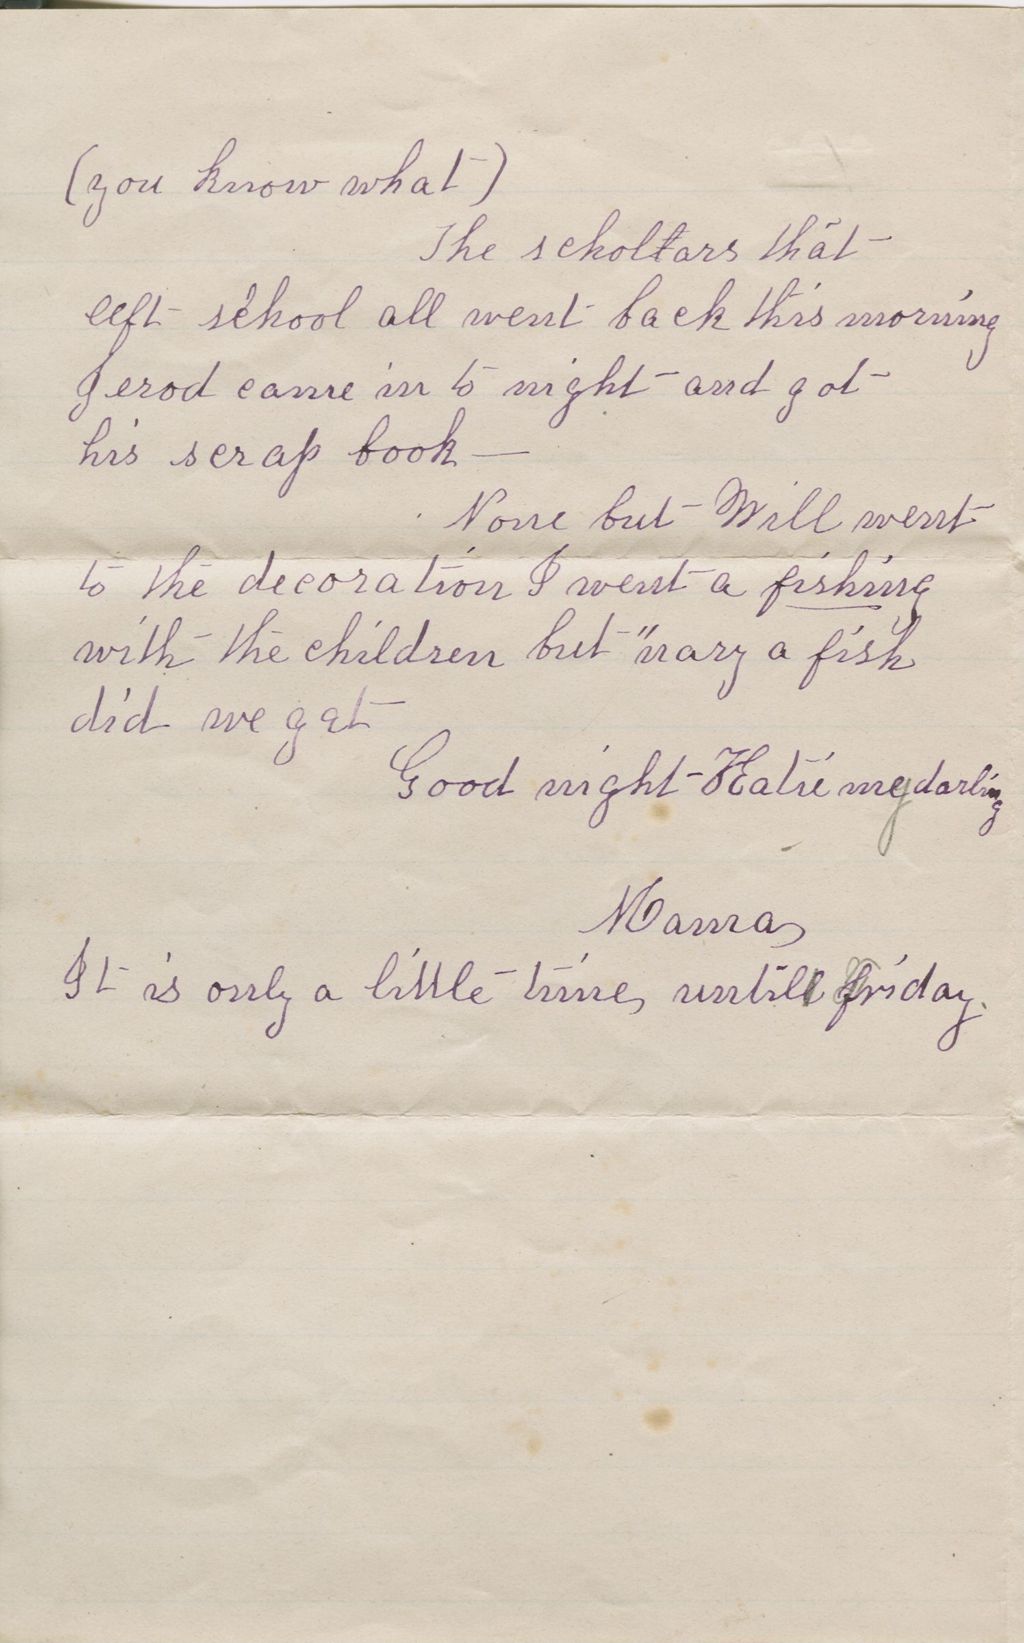 (you know what)
The scholars that
left school all went back this morning
Jerod came in to night and got
his scrap book —
None but Will went
to the decoration I went a fishing
with the children but "nary a fish
did we get
Good night Katie my darling
Mama
It is only a little time, untill friday.